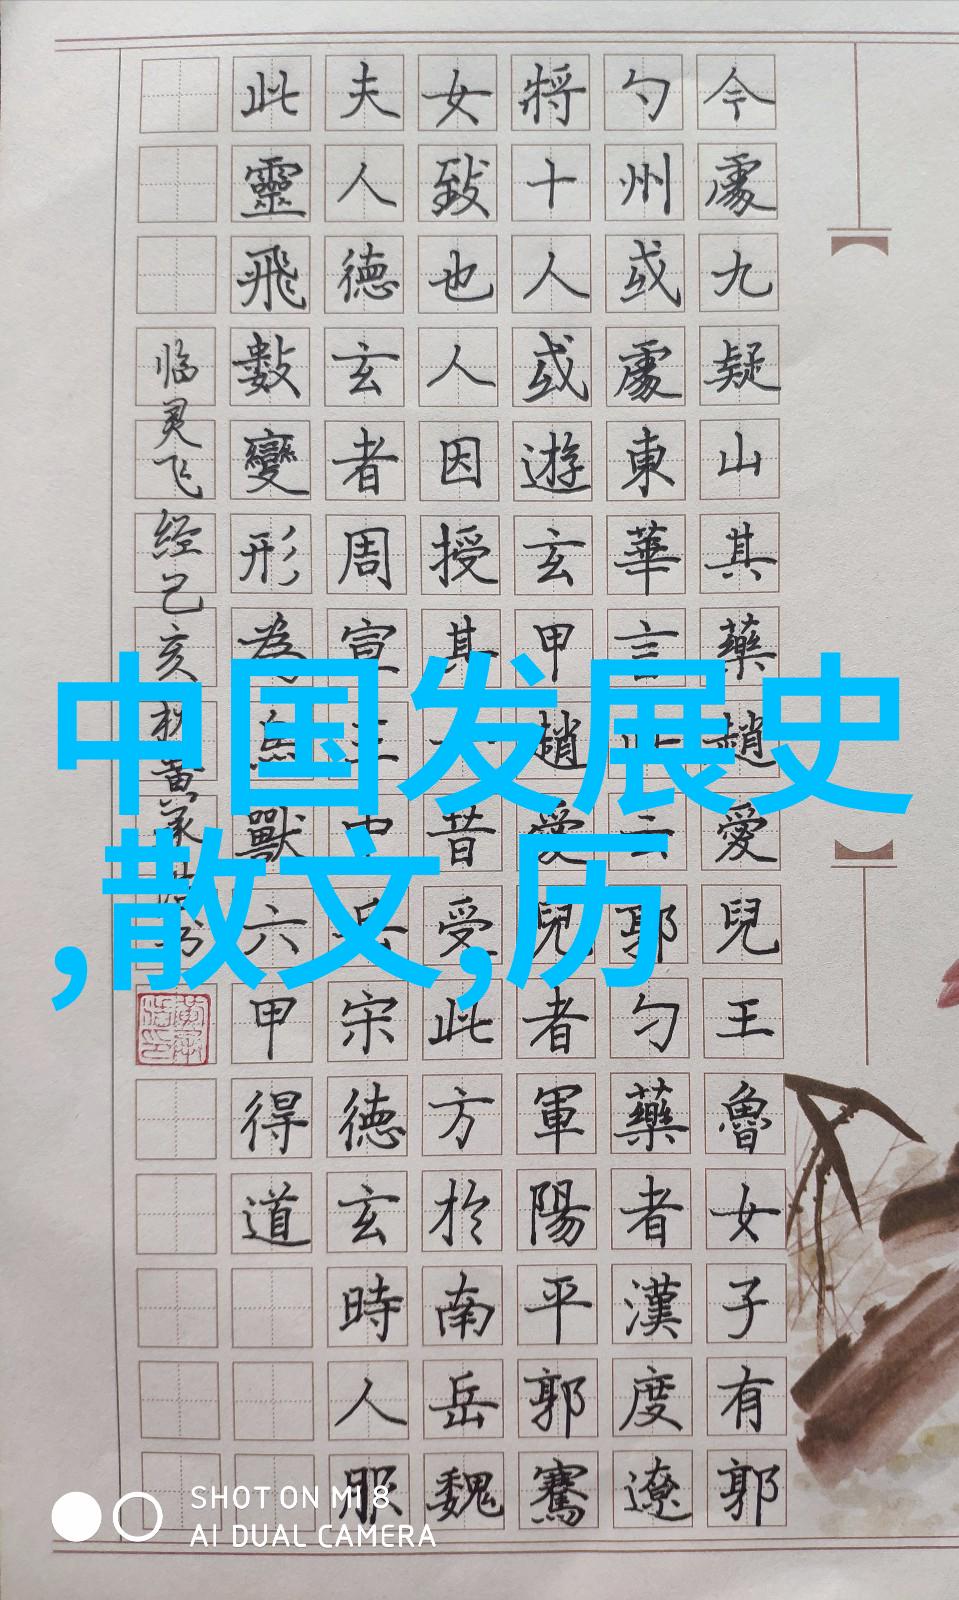 今處九疑山其藥趙愛兒王魯女子有郭
勺州或處東華言此云郭勺藥者漢度遼
將十人或遊玄甲趙愛兒者軍陽平郭騫
女致也人因授其昔受此方於南岳魏
夫人德玄者周宣王中岳宋德玄時人服
此靈飛數變形為鳥獸六甲得道
临灵飞经己亥
中国发展史
,散文,历
SHOT ON MI 8
AI DUAL CAMERA